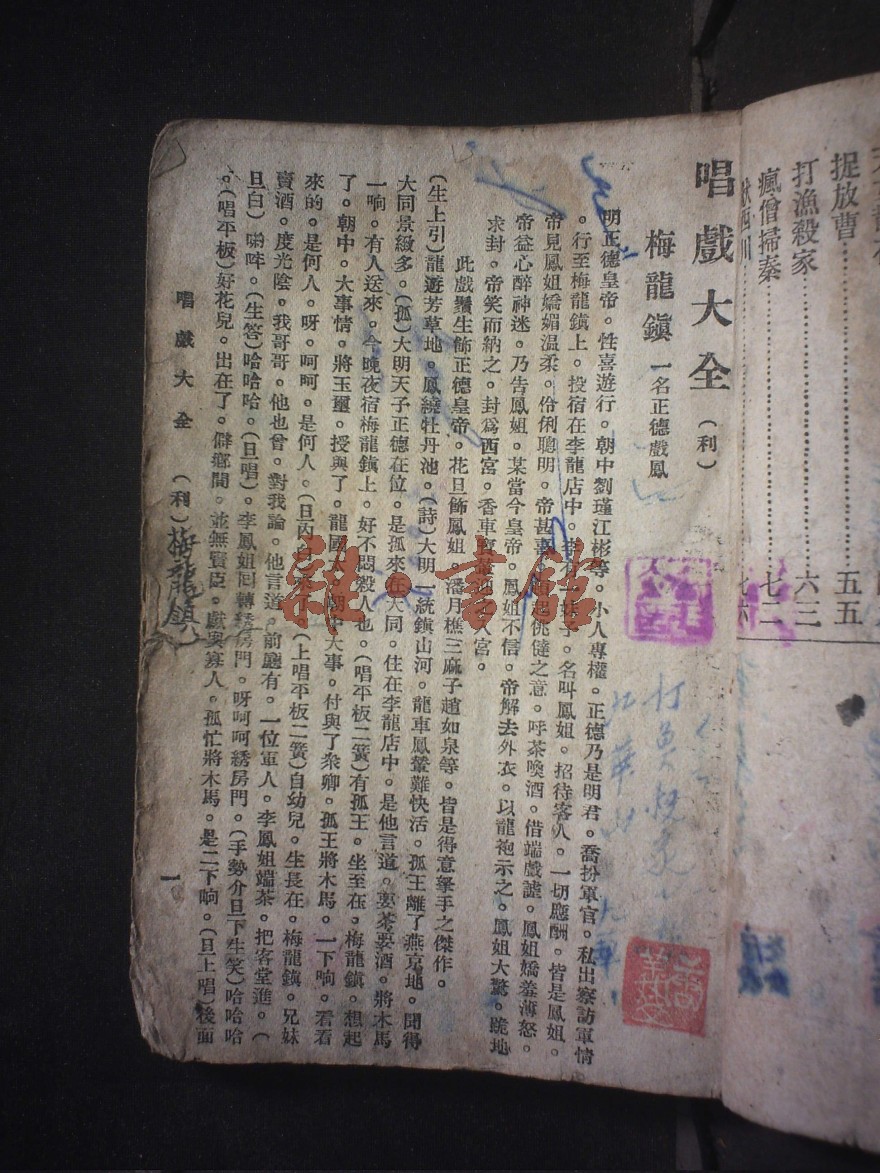 捉放曹 五五
打漁殺家 六三
瘋僧掃秦 七二
唱戲大全(利)
梅龍鎭 一名正德戲鳳
明正德皇帝。性喜遊行。朝中劉瑾江彬等。小人專權。正德乃是明君。喬扮軍官。私出察訪軍情
。行至梅龍鎭上。投宿在李龍店中。名叫鳳姐。招待客人。一切應酬。皆是鳳姐。
帝見鳳姐嬌媚溫柔。伶俐聰明。帝甚喜。佻健之意。呼茶喚酒。借端戲謔。鳳姐嬌羞薄怒。
帝益心醉神迷。乃告鳳姐。某當今皇帝。鳳姐不信。帝解去外衣。以龍袍示之。鳳姐大驚。跪地
求封。帝笑而納之。封爲西宮。香車入宮。
此戲鬚生飾正德皇帝。花旦飾鳳姐。潘月樵三麻子趙如泉等。皆是得意拏手之傑作。
(生上引)龍遊芳草地。鳳繞牡丹池。(詩)大明一統鎭山河。龍車鳳輦難快活。孤王離了燕京地。聞得
大同景緻多。(孤)大明天子正德在位。是孤來在大同。住在李龍店中。是他言道。要茶要酒。將木馬
一响。有人送來。今晚夜宿梅龍鎭上。好不悶殺人也。(唱平板二簧)有孤王。坐至在。梅龍鎭。想起
了。朝中。大事情。將玉璽。授與了。龍國太。朝中大事。付與了衆卿。孤王將木馬。一下响。看看
來的。是何人。呀。呵呵。是何人。(旦內白)來(上唱平板二簧)自幼兒。生長在。梅龍鎭。兄妹
賣酒。度光陰。我哥哥。他也曾。對我論。他言道。前廳有。一位軍人。李鳳姐端茶。把客堂進。(
旦白)啲哖。(生答)哈哈哈。(旦唱)。李鳳姐囘轉綉房門。呀呵呵綉房門。(手勢介旦下生笑)哈哈哈
。(唱平板)好花兒。出在了。僻鄕間。並無賢臣。戲奕寡人。孤忙將木馬。是二下响。(旦上唱)後面
唱戲大全 (利)梅龍鎭 一
梅龍鎮
雜·書館